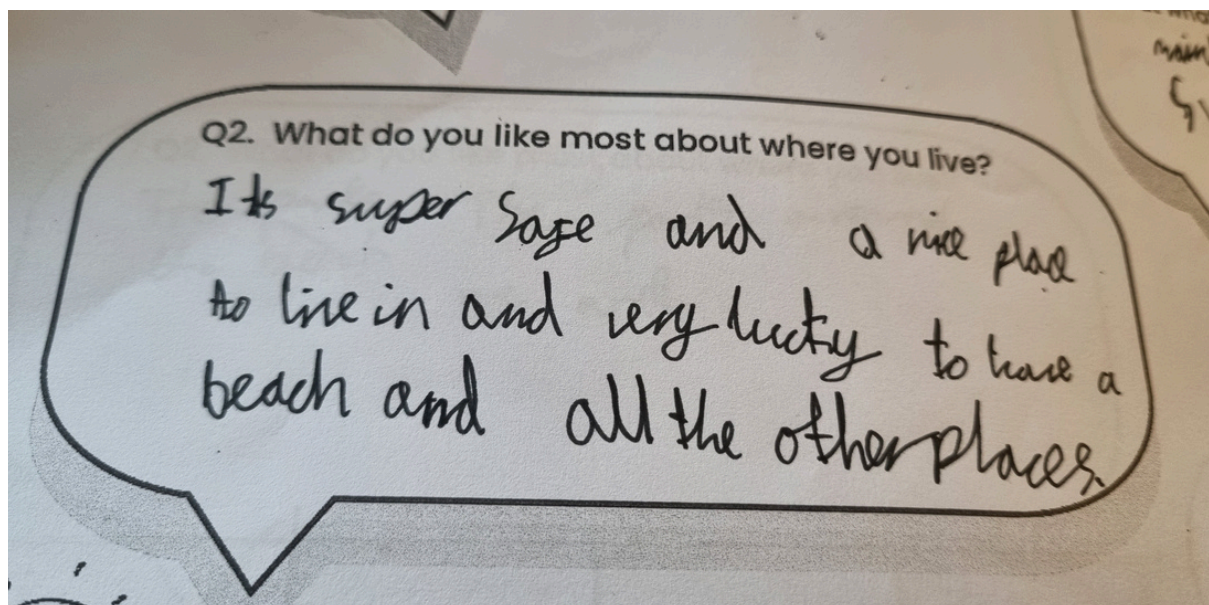 Q2. What do you like most about where you live?
Its super Safe and a nice place
to live in and very lucky to have a
beach and all the other places.